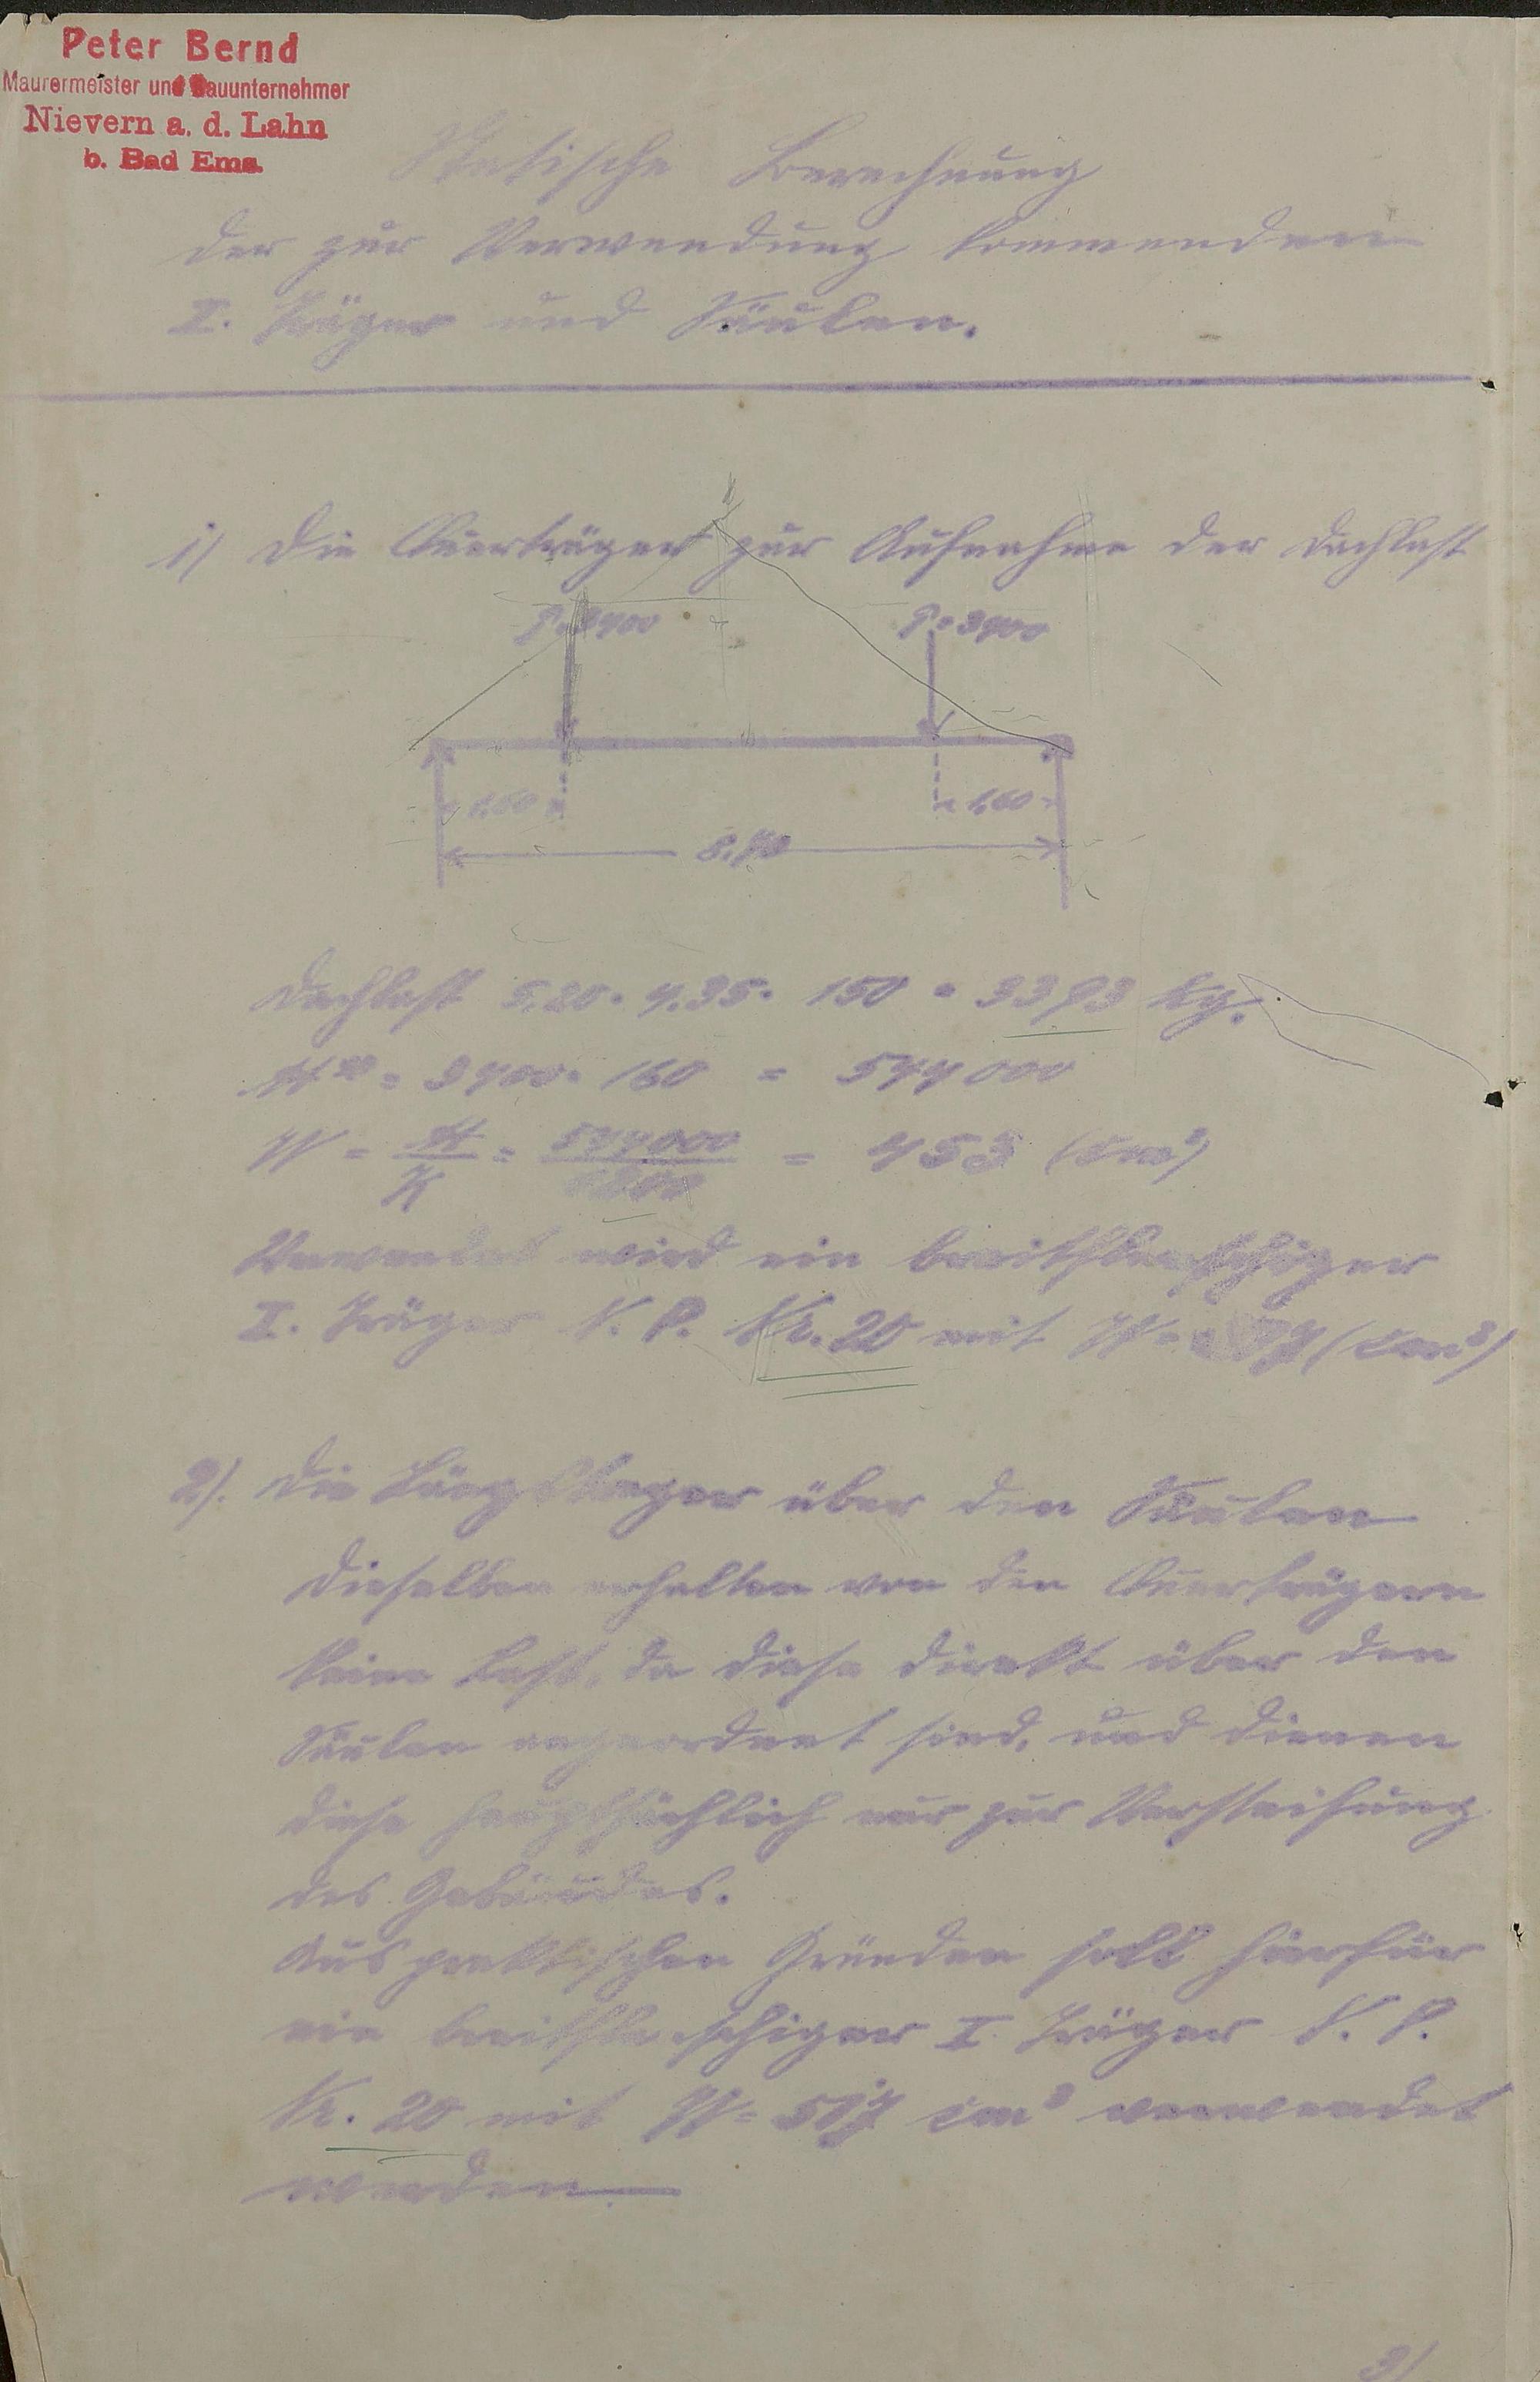 Peter Bernd
Maurermeister und Bauunternehmer
Nievern a. d. Lahn
b. Bad Ems.
Statische Berechnung
der zur Verwendung kommenden
I. Träger und Säulen.
1) Die Querträger zur Aufnahme der Dachlast
P = 3400 P = 3400
1,60 1,60
Dachlast 5.20 · 4.35 · 150 = 3393 kg.
= 3400 · 160 = 544000
W = M/K = 544000/1200 = 453 (cm³)
Verwendet wird ein breitflanschiger
I. Träger N. P. Nr. 20 mit W = (cm³)
2). Die Längsträger über den Säulen
Dieselben erhalten von den Querträgern
keine Last, da diese direkt über den
Säulen angeordnet sind, und dienen
diese hauptsächlich nur zur Versteifung
des Gebäudes.
Aus praktischen Gründen soll hierfür
ein breitflanschiger I. Träger N. P.
Nr. 20 mit W = cm³ verwendet
werden.
3)